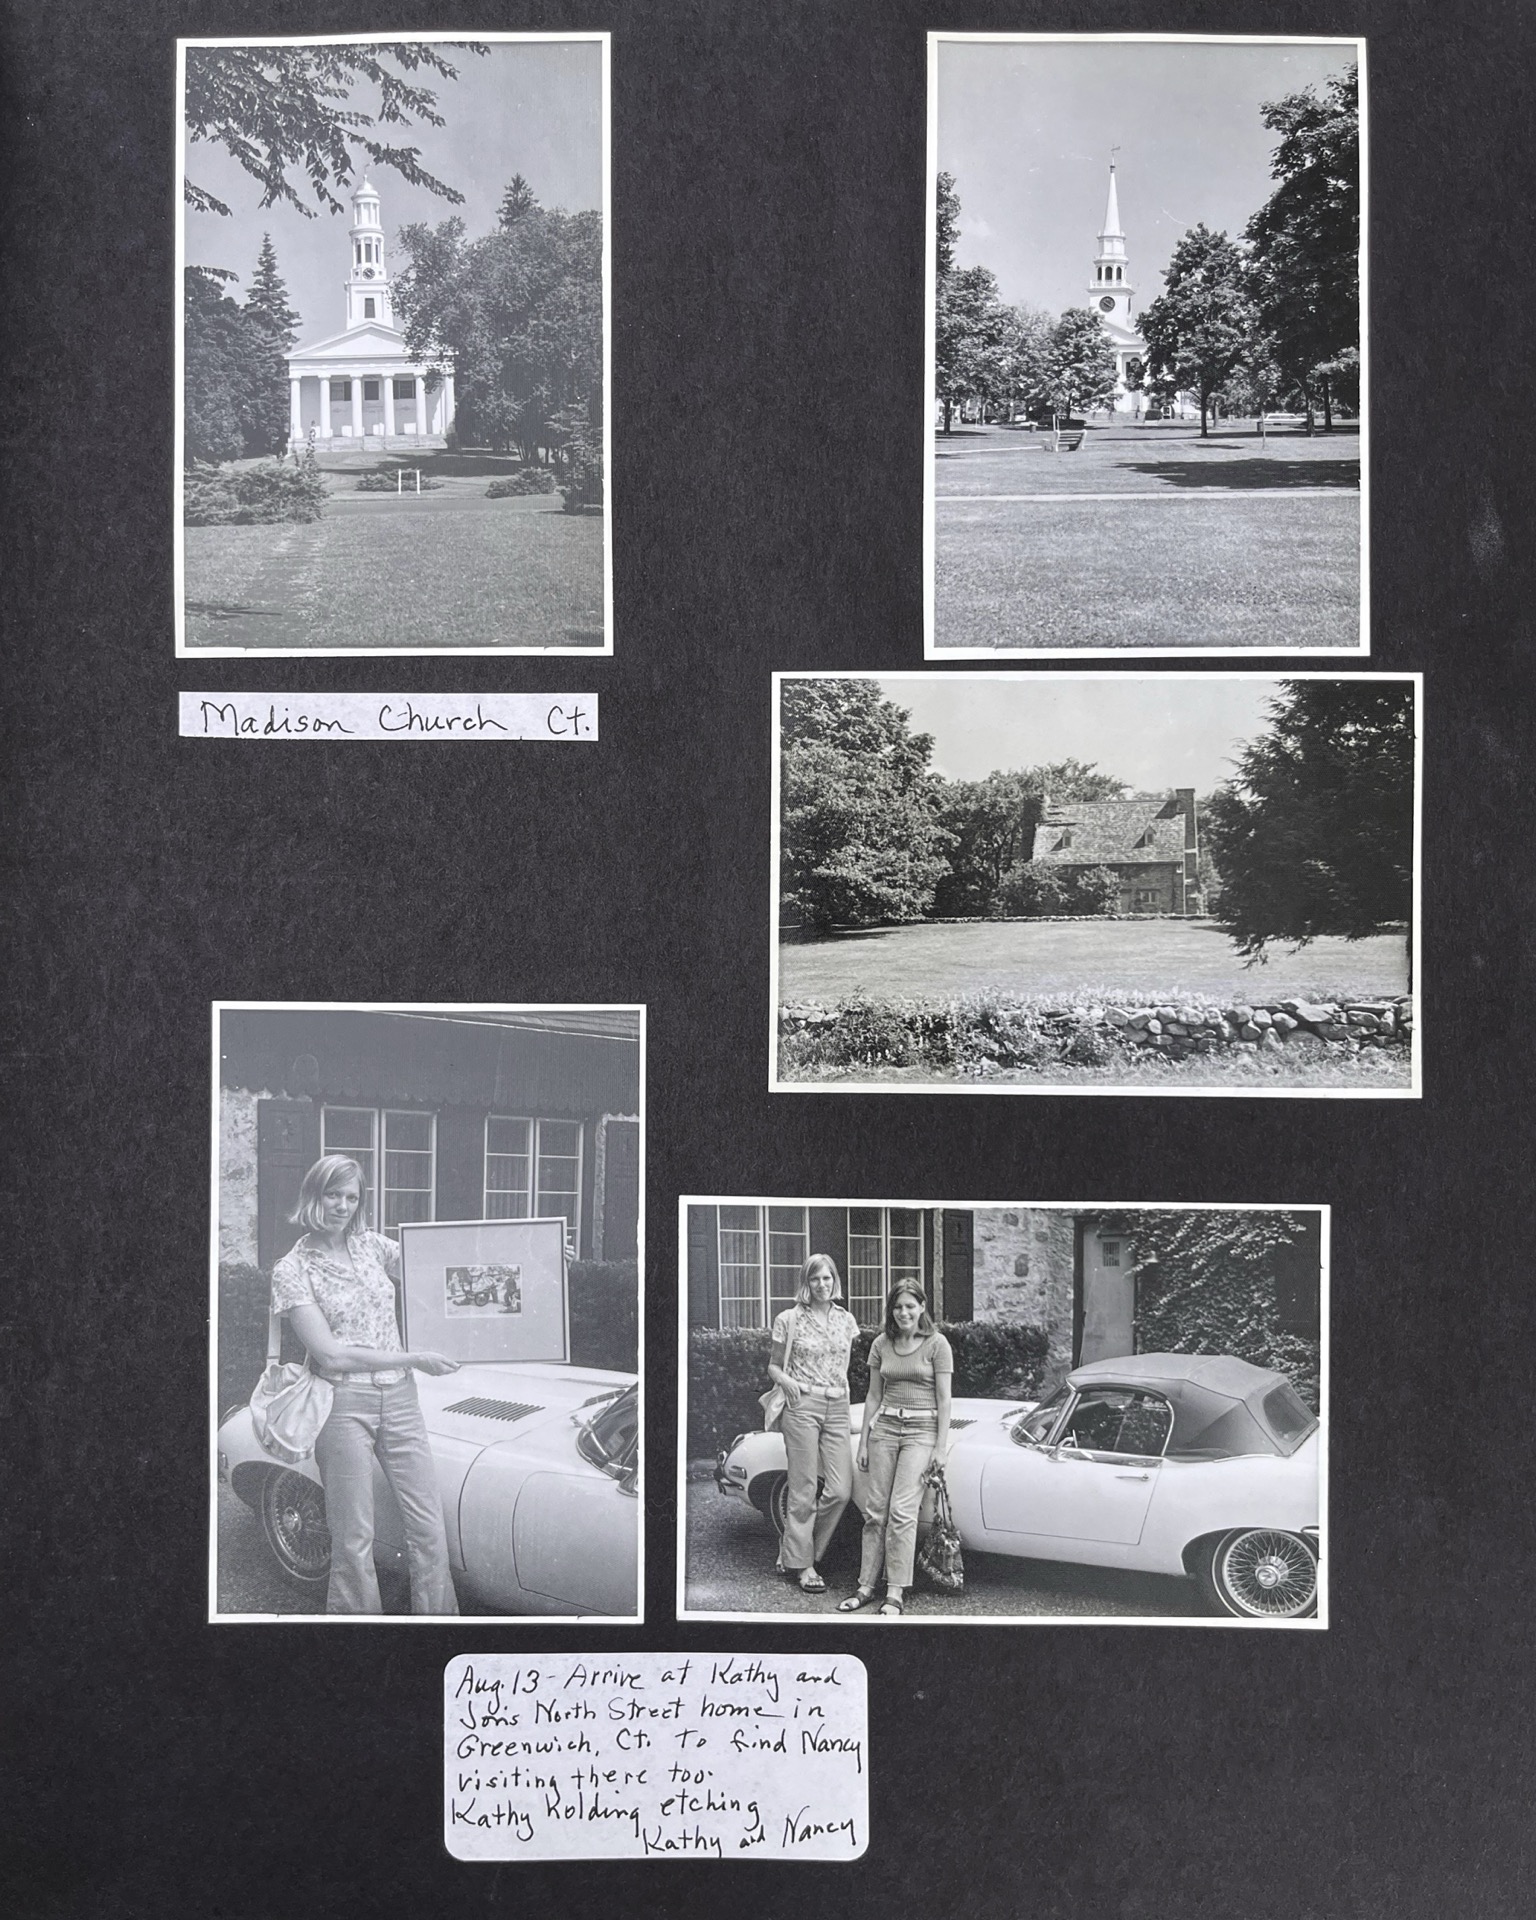 Madison Church, Ct.
Aug. 13 - Arrive at Kathy and
Jon's North Street home in
Greenwich, Ct. To find Nancy
visiting there too.
Kathy holding etching
Kathy and Nancy